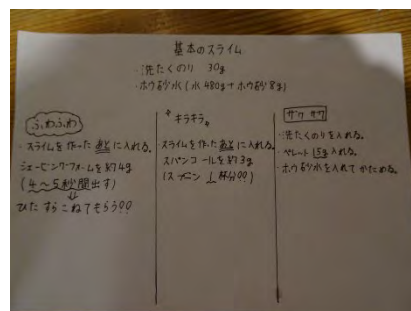 基本のスライム
・洗たくのり 30g
・ホウ砂水(水480g+ホウ砂8g)
ふわふわ
・スライムを作ったあとに入れる。
シェービングフォームを約4g
(4～5秒間出す)
↓
ひたすらこねてもらう??
"キラキラ"
スライムを作ったあとに入れる。
スパンコールを約3g
(スプーン1杯分??)
ザクザク
・洗たくのりを入れる。
・ペレット15g入れる。
・ホウ砂水を入れてかためる。